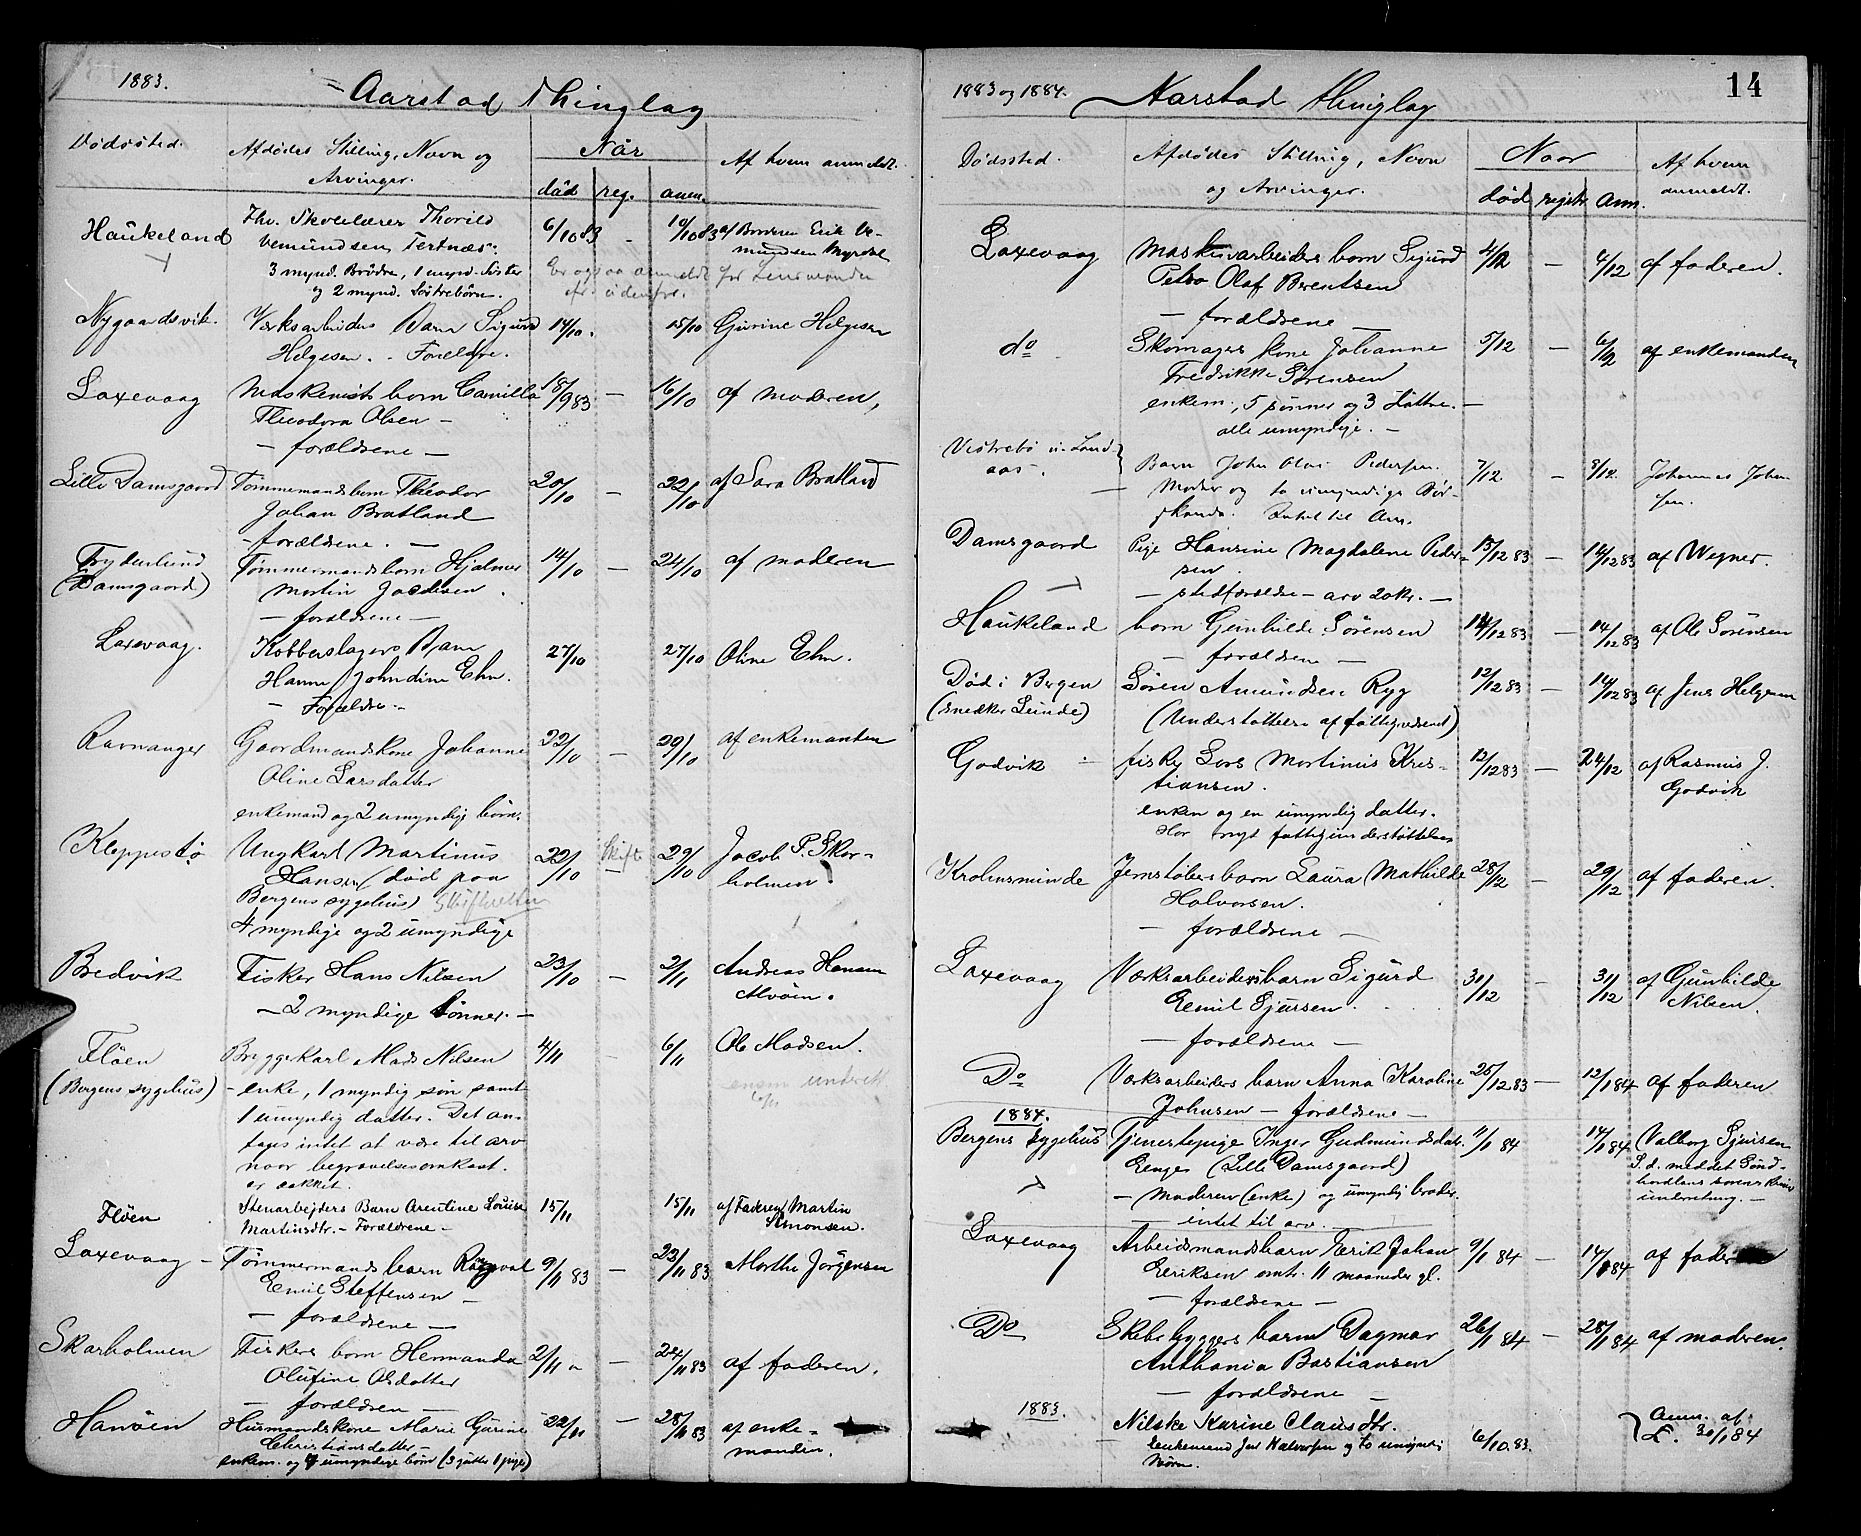 1883.
Aarstad Thinglag
Dødssted.
Afdødes Stilling, Navn og
Arvinger.
Når
død reg. anm.
Af hvem anmeldt.
Haukeland
Fhv. Skolelærer Thorild 6/10 83 - 10/10 83 af Broderen Erik Ve-
Vemundsen Tertnæs: mundsen Myrdal
3 mynd. Brødre, 1 mynd. Søster Er ogsaa anmeldt for Lensmanden
og 2 mynd. Søstrebørn.
Nygaardsvik. Værksarbeiders Barn Sigurd 14/10. 15/10 Gurine Helgesen
Helgesen. - Forældre.
Laxevaag Maskinists barn Camilla 18/9 83 - 16/10 af moderen,
Theodora Olsen -
- forældrene -
Lille Damsgaard Tømmermands barn Theodor 20/10 - 22/10 af Sara Bratland
Johan Bratland
- forældrene. -
Frydenlund Tømmermands barn Hjalmar 14/10 - 24/10 af moderen
(Damsgaard) Martin Jacobsen.
- forældrene -
Laxevaag. Kobberslagers Barn 27/10 27/10 Oline Ehn.
Hanne Johndine Ehn.
- Forældre. -
Ravnanger Gaardmandskone Johanne 22/10 - 29/10 af enkemanden
Oline Larsdatter
enkemand og 2 umyndige børn.
Kleppestø Ungkarl Martinus 22/10 Skifte 29/10 Jacob P. Skar-
Hansen (død paa holmen
Bergens sygehus) Skifteretten
4 myndige og 2 umyndige
Bredvik Fisker Hans Nilsen 23/10 - 2/11 Andreas Hansen
- 2 myndige sønner. - Alvøen.
Fløen Bryggekarl Mads Nilsen 4/11 - 6/11 Ole Madsen.
(Bergens sygehus) - enke, 1 myndig søn samt
1 umyndig datter. Det an-
tages intet at være til arv
naar begravelsesomkost.
er dækket.
Fløen Stenarbejders Barn Arentine Lovise 15/11 15/11 af Faderen Martin
Martinsdtr. - Forældrene - Simonsen.
Laxevaag - Tømmermands barn Ragnval 9/11 83 - 23/11 83 Marthe Jørgensen
Emil Steffensen -
- forældrene -
Skarholmen Fiskers barn Hermanda 2/11 " - 24/11 83 af faderen.
Olufine Olsdatter
- forældren -
Hanøen Husmandskone Marie Gurine 22/11 - 28/11 83 af enke-
Christiansdatter - manden.
enkem. og 4 umyndige børn (3 gutter 1 pige)
1883 og 1884. Aarstad thinglag 14
Dødssted. Afdødes Stilling, Navn
og Arvinger.
Naar
død registr. Anm.
Af hvem
anmeldt.
Laxevaag Maskinarbeiders barn Sigurd 4/12 - 4/12 af faderen.
Petro Olaf Berentsen
- forældrene -
do Skomagers kone Johanne 5/12 - 6/12 af enkemanden
Fredrikke Sørensen
enkem., 5 sønner og 3 døttre. -
alle umyndige. -
Vestrebø u. Land-
aas. Barn John Olai Pedersen. 7/12 - 8/12. Johannes Johan-
Moder og to umyndige Sød- sen.
skende. Intet til Arv.
Damsgaard Pige Hansine Magdalene Peder- 13/12 83 - 14/12 83 af Wegner.
sen
- stedforældre - arv 20kr. -
Haukeland barn Gunhilde Sørensen 14/12 83 - 14/12 83 af Ole Sørensen
- forældrene -
Død i Bergen Søren Amundsen Ryg 12/12 83 - 14/12 83 af Jens Helgesen
(snedker Lunde) (Understøttelse af fattigvæsenet)
Godvik - fisker Lars Martinus Kris- 12/12 83 - 24/12 af Rasmus J.
tiansen. Godvik
enken og en umyndig datter.
Har nydt fattigunderstøttelse
Krohnsminde Jernstøbers barn Laura Mathilde 28/12 - 29/12 af faderen.
Halvorsen.
- forældrene -
Laxevaag Værksarbeiders barn Sigurd 31/12 - 31/12 af Gunhilde
Emil Sjursen. Nilsen.
- forældrene -
Do Værksarbeiders barn Anna Karoline 25/12 83 - 12/1 84 af faderen
Johnsen - forældrene -
1884.
Bergens sygehus Tjenestepige Inger Gudmundsdat. 11/1 84 14/1 84 Valborg Sjursen
Eenges (Lille Damsgaard) S. d. meddelt Sønd-
- Moderen (enke) og umyndig broder. hordlens sorenskriver
- intet til arv - underretning. -
Laxevaag Arbeidsmandsbarn Erik Johan 9/1 84 - 14/1 84 af faderen
Eeriksen omtr. 11 maaneder gl.
- forældrene -
Do Skibsbyggers barn Dagmar 26/1 84 - 28/1 84 af moderen.
Anthonia Bastiansen
- forældrene -
1883. Nilske Karine Clausdtr. 6/10. 83. Anm. af
Enkemand Jens Halvorsen og to umynd. L. 30/1 84
Børn.